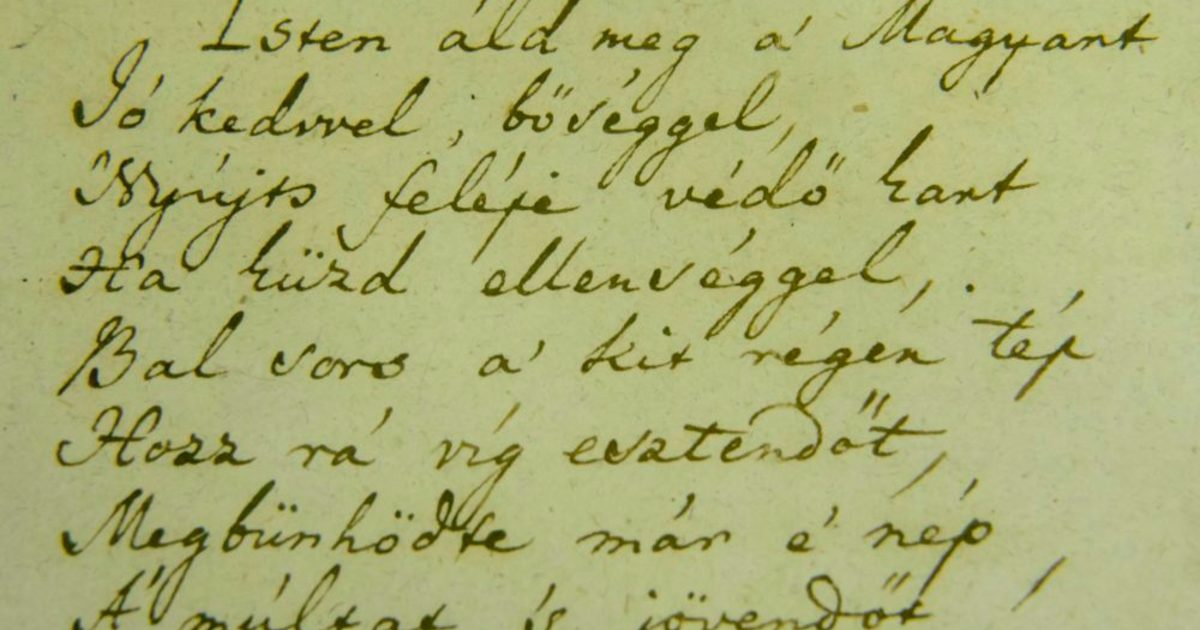 Isten áld meg a' Magyart
Jó kedvvel, bőséggel,
Nyújts feléje védő kart
Ha küzd ellenséggel,
Bal sors a' kit régen tép
Hozz rá víg esztendőt,
Megbünhödte már é nép
A' múltat és jövendőt